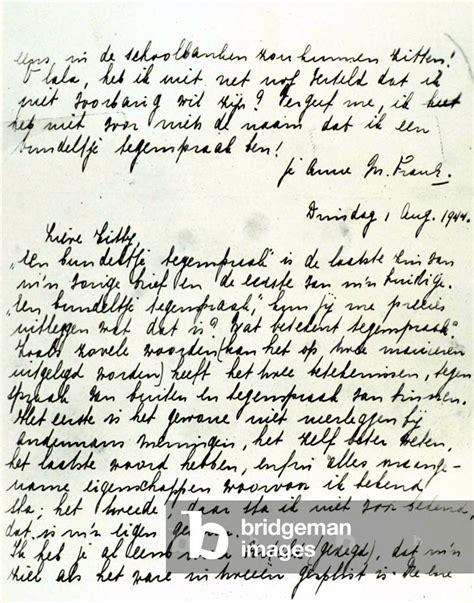 eens, in de schoolbanken zou kunnen zitten!
O lala, heb ik niet net nog verteld dat ik
niet voorbarig wil zijn? Vergeef me, ik heet
heb niet voor niets de naam dat ik een
bundeltje tegenspraak ben!
je Anne M. Frank.
Dinsdag, 1 Aug. 1944.
Lieve Kitty,
„Een bundeltje tegenspraak" is de laatste zin van
m'n vorige brief en de eerste van m'n huidige.
„Een bundeltje tegenspraak", kun jij me precies
uitleggen wat dat is? Wat betekent tegenspraak?
Zoals zovele woorden (kan het op twee manieren
uitgelegd worden) heeft het twee betekenissen, tegen
spraak van buiten en tegenspraak van binnen.
Het eerste is het gewone niet neerleggen bij
andermans meningen, het zelf beter weten,
het laatste woord hebben, enfin alles onaange-
name eigenschappen waarvoor ik bekend
sta; het tweede, daar sta ik niet voor bekend,
dat is m'n eigen
Ik heb je al eens gezegd), dat m'n
ziel als het ware in tweeën gesplitst is. De ene
b bridgeman
images